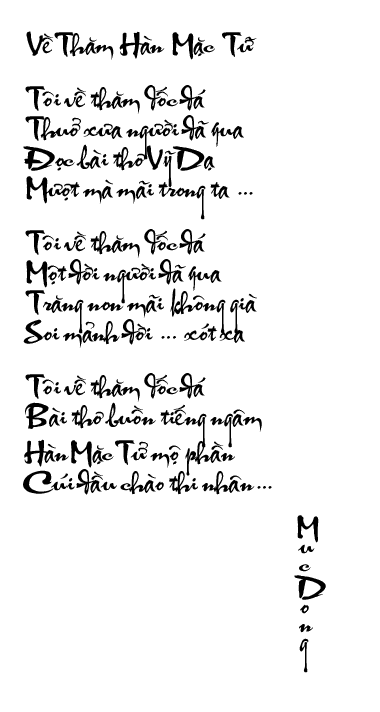 Về Thăm Hàn Mặc Tử
Tôi về thăm dốc đá
Thuở xưa người đã qua
Đọc bài thơ Vỹ Dạ
Mượt mà mãi trong ta ...
Tôi về thăm dốc đá
Một đời người đã qua
Trăng non mãi không già
Soi mảnh đời ... xót xa
Tôi về thăm dốc đá
Bài thơ buồn tiếng ngâm
Hàn Mặc Tử mộ phần
Cúi đầu chào thi nhân...
Muc Dong